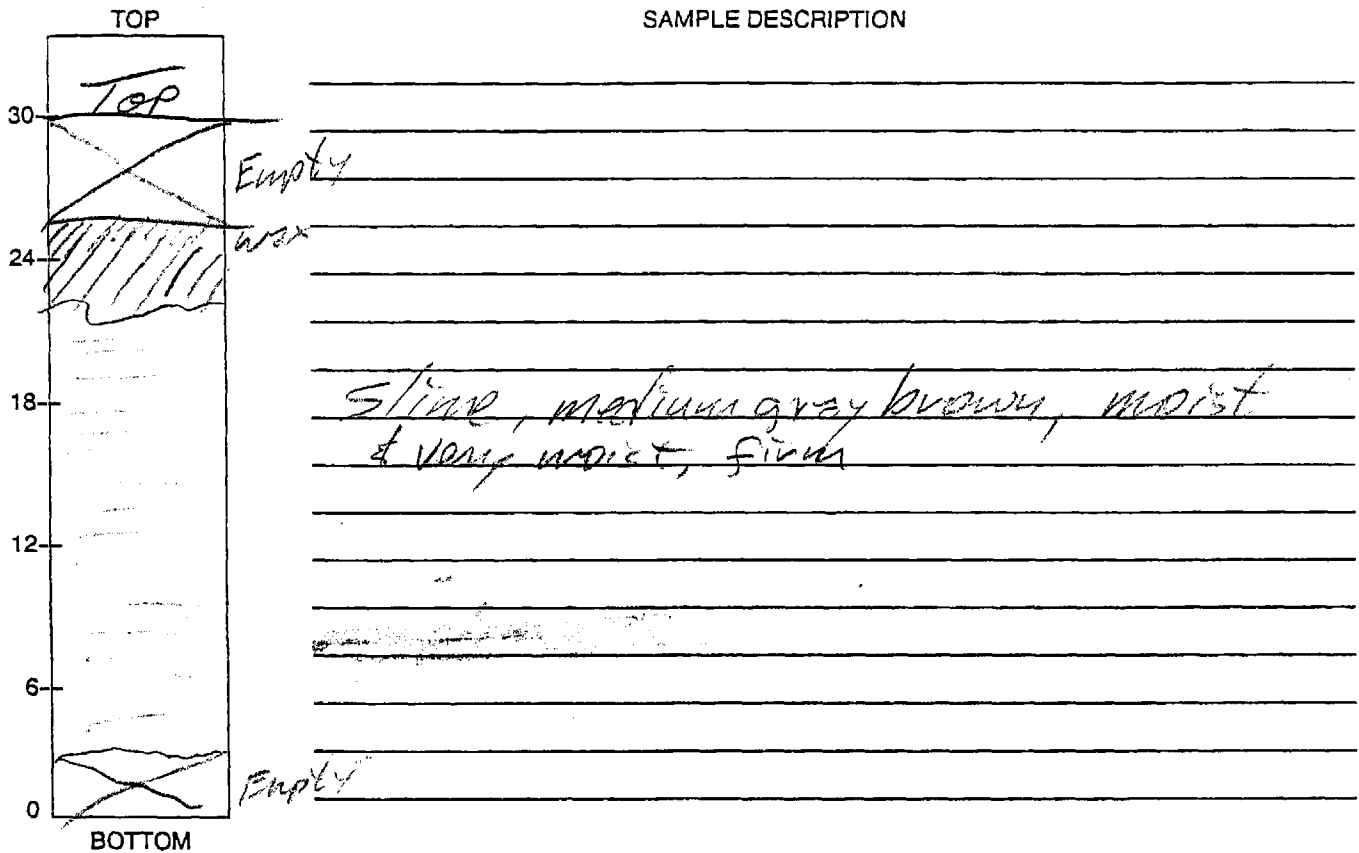 TOP
SAMPLE DESCRIPTION
Top
30
Empty
wax
24
18
Slime, medium gray brown, moist
& very moist, firm
12
6
Empty
0
BOTTOM